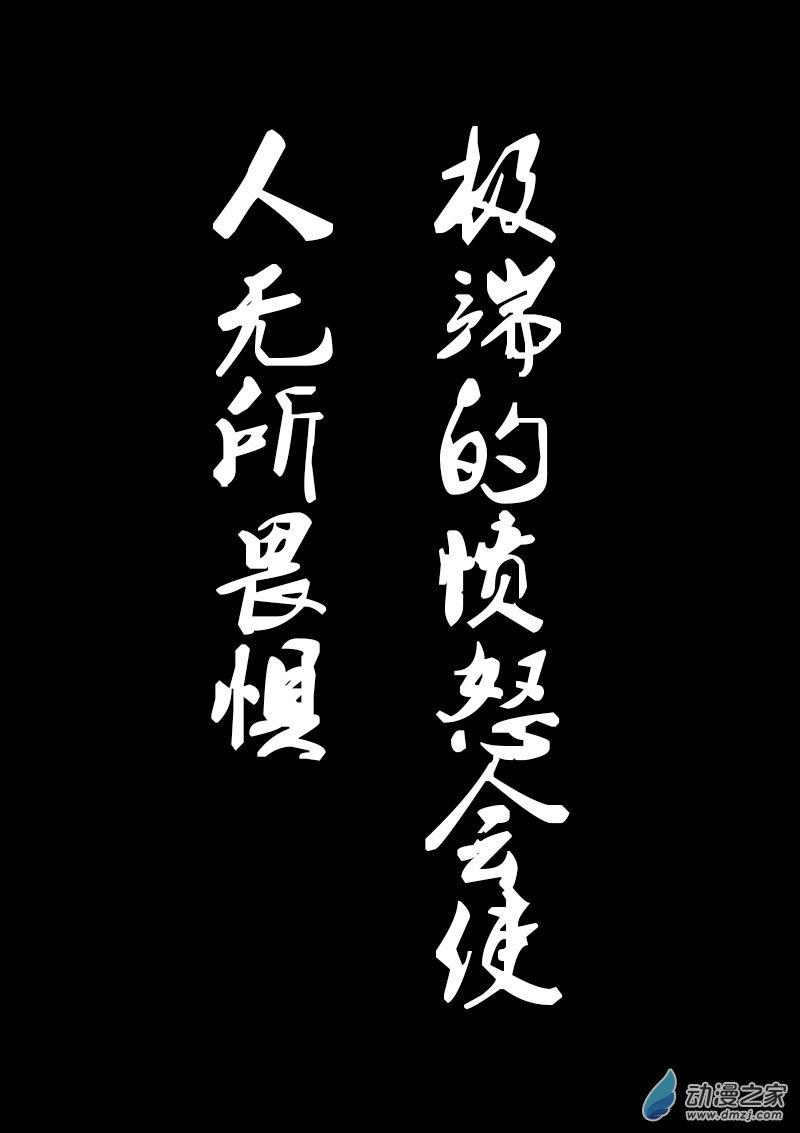 极端的愤怒会使
人无所畏惧
动漫之家
www.dmzj.com